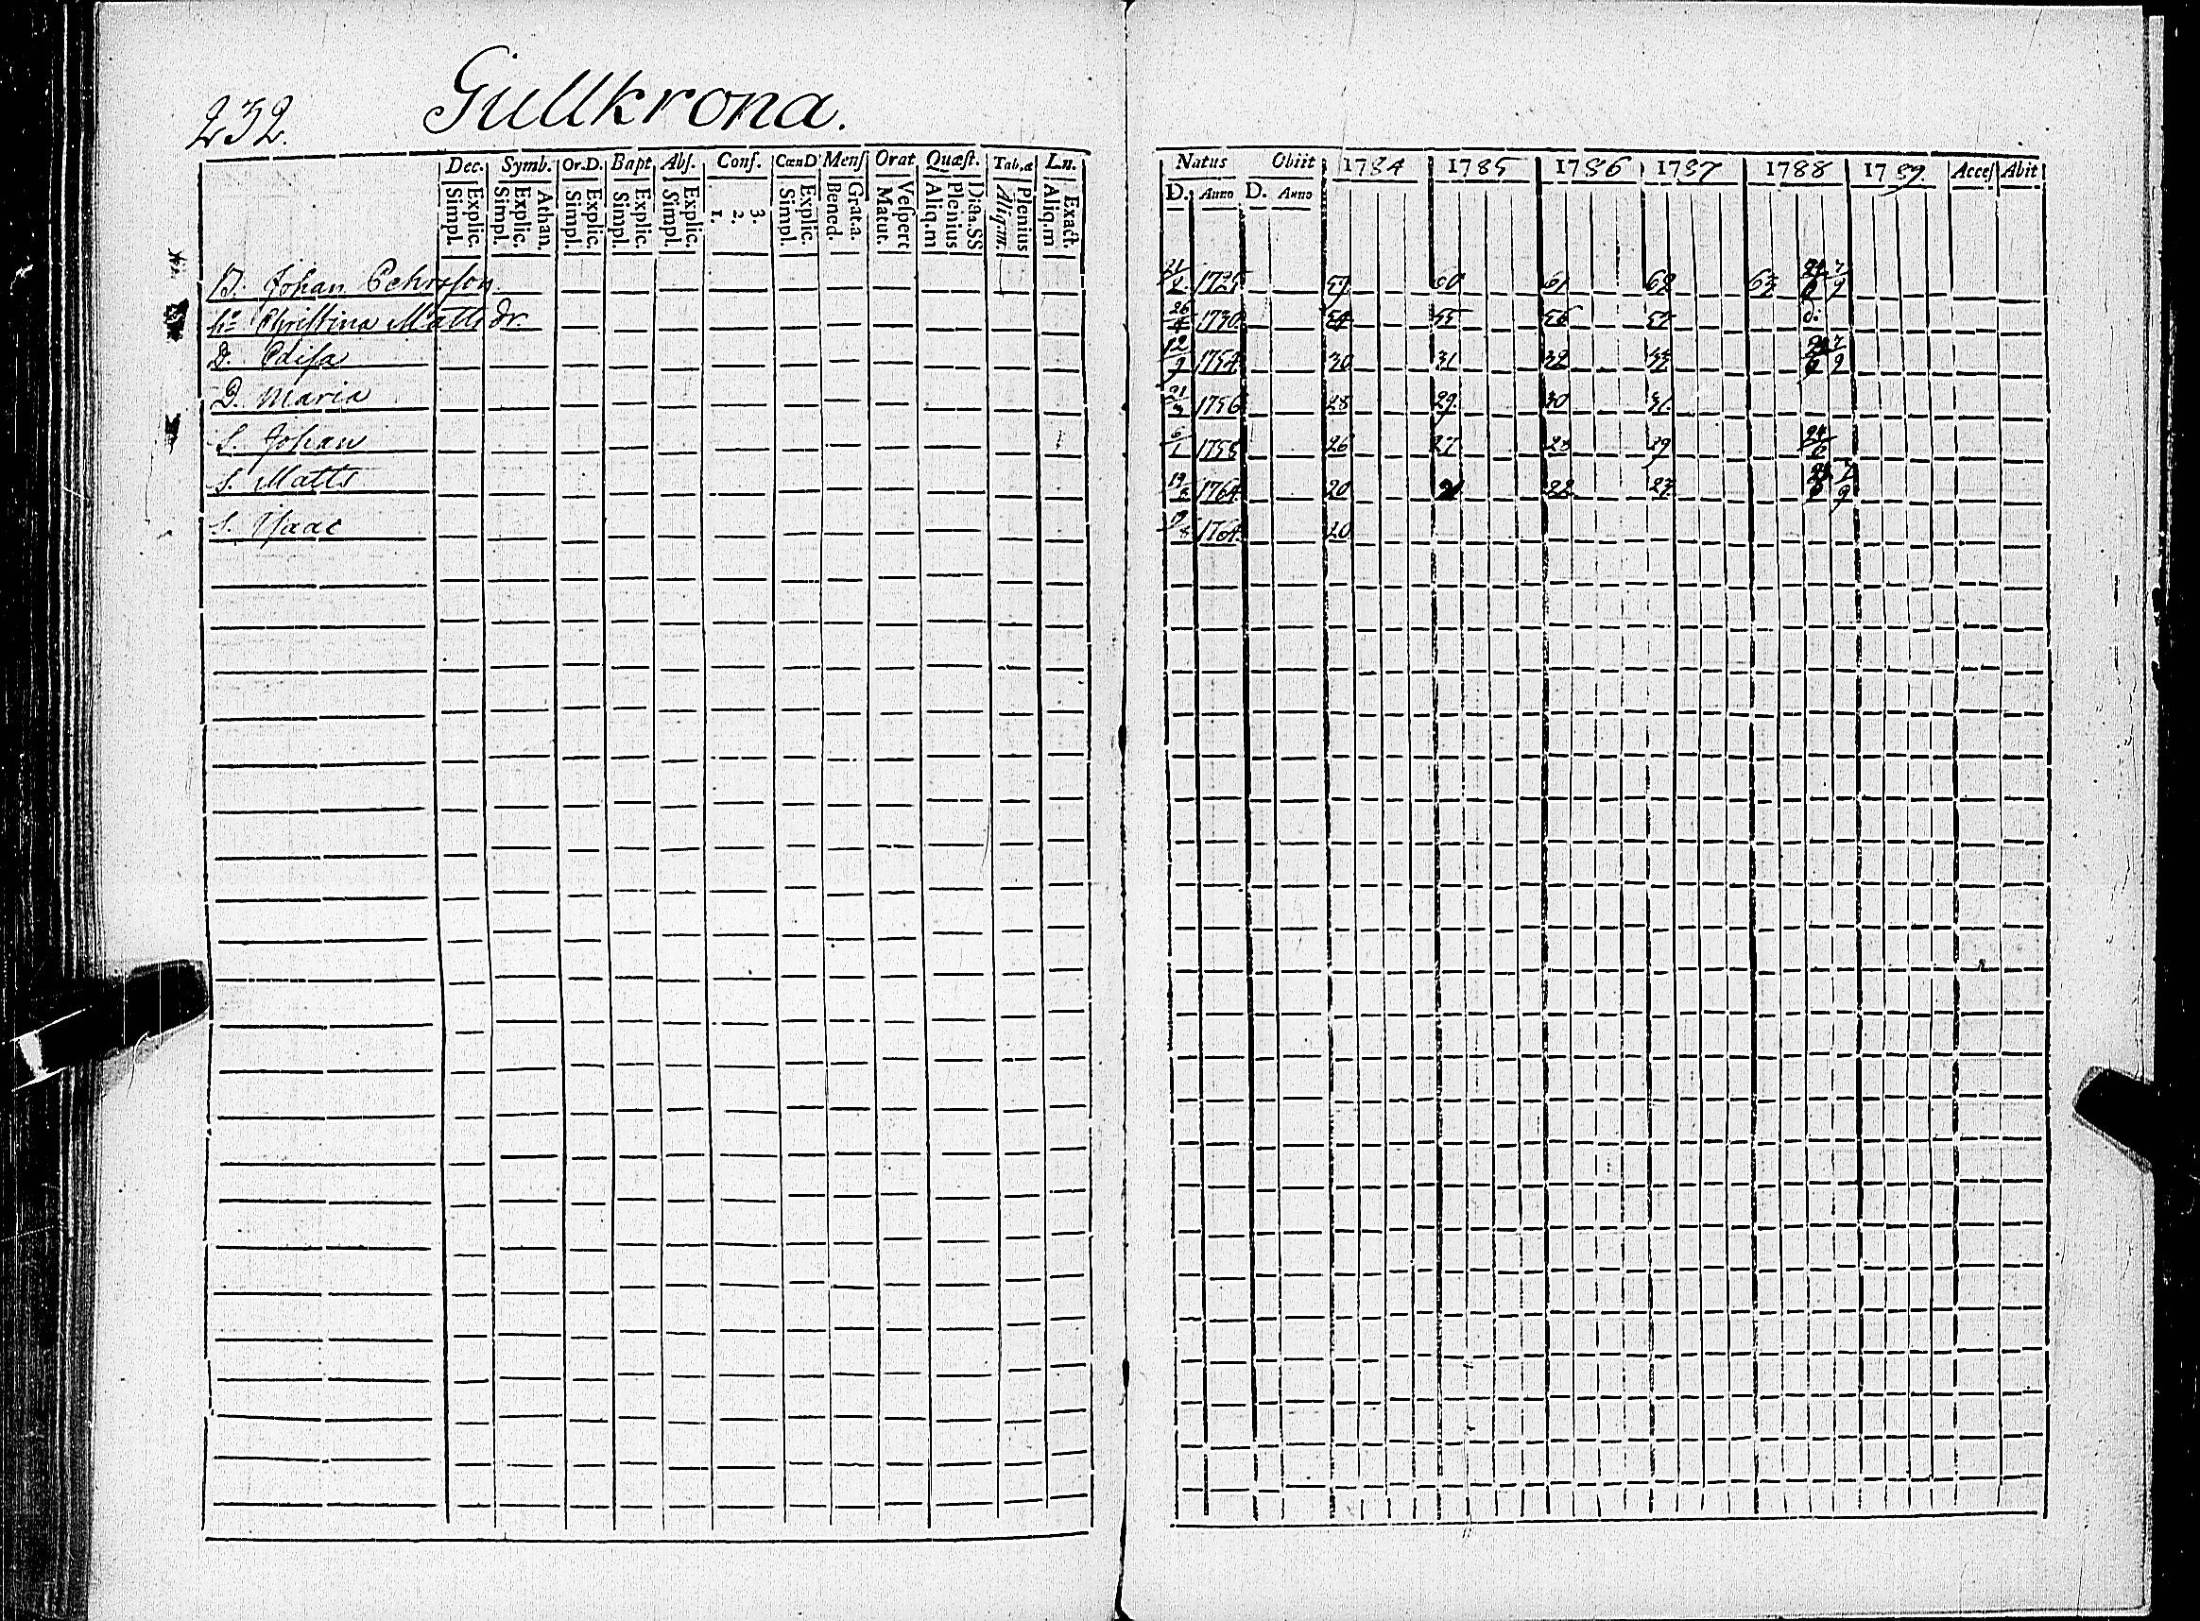 232. Gullkrona.
Dec. Symb. Or.D. Bapt. Abſ. Conf. Cœn D Menſ Orat. Quæſt. Tab.æ Ln.
Simpl. Explic. Simpl. Explic. Athan. Simpl. Explic. Simpl. Explic. Simpl. Explic. 1. 2. 3. Simpl. Explic. Bened. Grat.a. Matut. Veſpert Aliq.m Plenius Dia.SS Aliq.m. Plenius Aliq.m Exact.
Natus Obiit 1784 1785 1786 1787 1788 1789 Acceſ Abit
D. Anno D. Anno
B. Johan Pehrsſon 21/2 1725 59 60 61 62 63
h: Christina Matts dr. 26/4 1730 54 55 56 57
D. Edisa 12/9 1754 30 31 32 33
D. Maria 1756 28 29 30 31
S. Johan 6/1 1758 26 27 28 29 24/6
S. Matts 1764 20 21 22 23
S. Isaac 1764 20